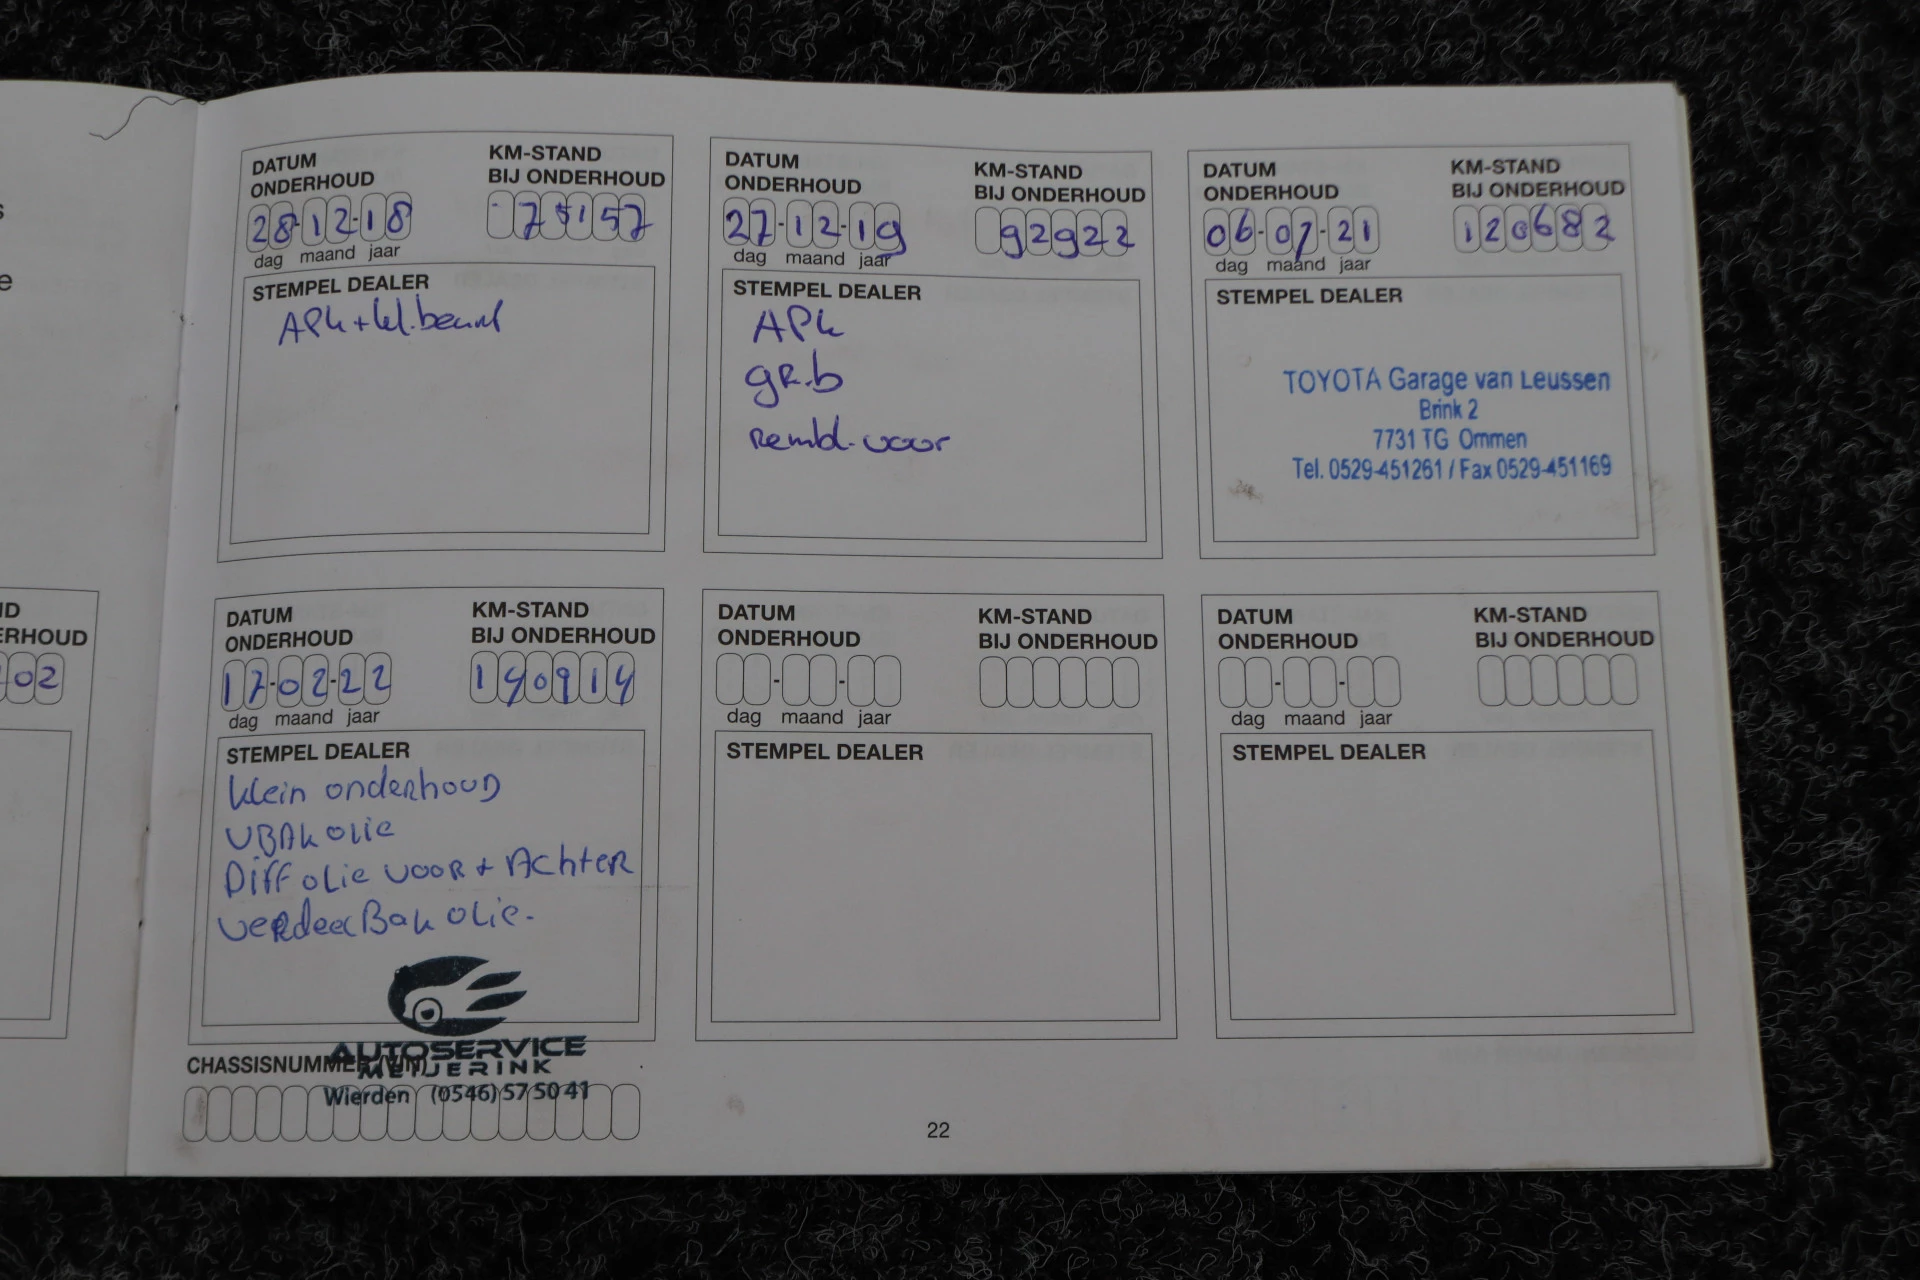 s
e
ND
ERHOUD
02
DATUM
ONDERHOUD
KM-STAND
BIJ ONDERHOUD
28-12-18
75157
dag maand jaar
STEMPEL DEALER
APk + kl. beurt
DATUM
ONDERHOUD
KM-STAND
BIJ ONDERHOUD
27-12-19
92922
dag maand jaar
STEMPEL DEALER
APk
gR.b
Rembl. voor
DATUM
ONDERHOUD
KM-STAND
BIJ ONDERHOUD
06-07-21
120682
dag maand jaar
STEMPEL DEALER
TOYOTA Garage van Leussen
Brink 2
7731 TG Ommen
Tel. 0529-451261 / Fax 0529-451169
DATUM
ONDERHOUD
KM-STAND
BIJ ONDERHOUD
17-02-22
140914
dag maand jaar
STEMPEL DEALER
klein onderhoud
VBAk olie
Diff olie voor + Achter
verdeelBak olie.
AUTOSERVICE
MEIJERINK
Wierden (0546) 57 50 41
CHASSISNUMMER (VIN)
DATUM
ONDERHOUD
KM-STAND
BIJ ONDERHOUD
- -
dag maand jaar
STEMPEL DEALER
DATUM
ONDERHOUD
KM-STAND
BIJ ONDERHOUD
- -
dag maand jaar
STEMPEL DEALER
22